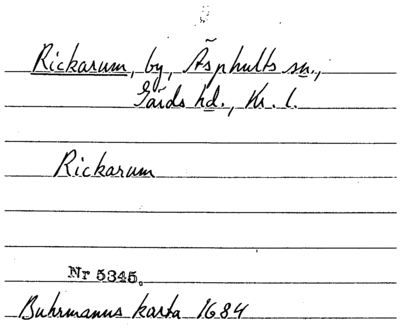 Rickarum, by, Äsphults sn.,
Gärds hd., Kr. l.
Rickarum
Nr 5345.
Buhrmanns karta 1684